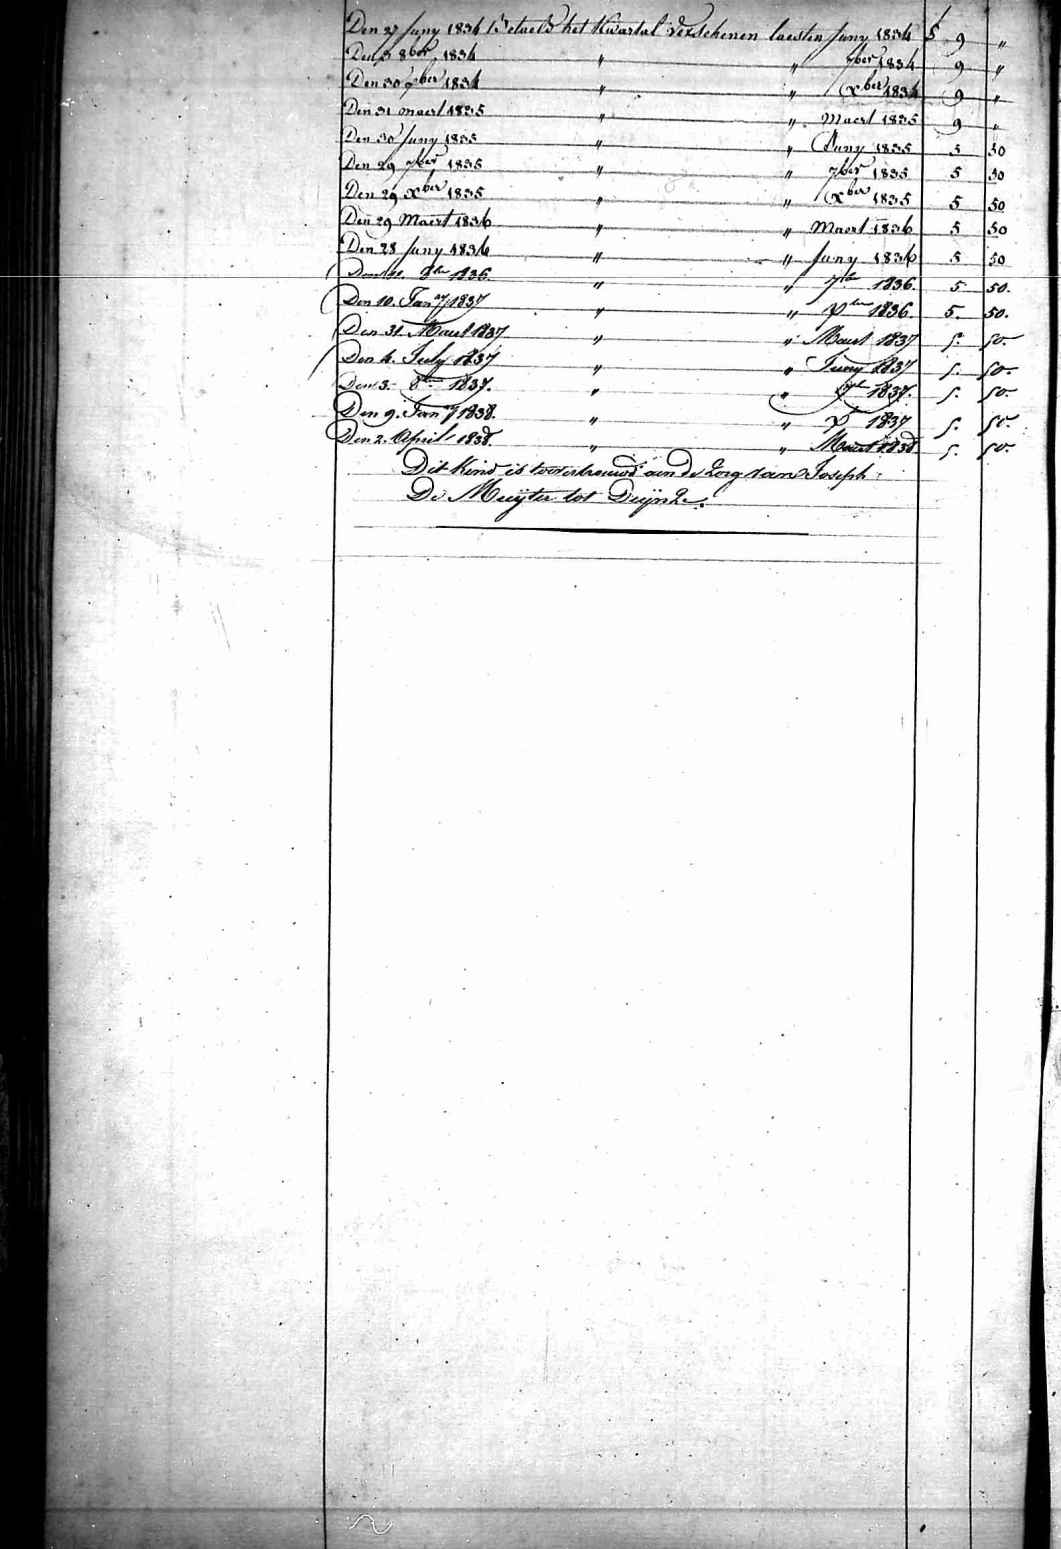 Den 27 Juny 1834 Betaeld het Kwartal verschenen laesten Juny 1834 f 9 "
Den 3 8ber 1834 " " 7ber 1834 9 "
Den 30 xber 1834 " " xber 1834 9 "
Den 31 maert 1835 " " Maert 1835 9 "
Den 30 Juny 1835 " " Juny 1835 5 50
Den 29 7ber 1835 " " 7ber 1835 5 50
Den 29 xber 1835 " " xber 1835 5 50
Den 29 Maert 1836 " " Maert 1836 5 50
Den 28 Juny 1836 " " Juny 1836 5 50
Den 8ber 1836. " " 7br 1836. 5 50.
Den 10. Jany 1837 " " xber 1836. 5. 50.
Den 31. Maert 1837 " " Maert 1837 5. 50.
Den 4. July 1837 " " Juny 1837 5. 50.
Den 3. 8br 1837. " " 7br 1837. 5. 50.
Den 9. Jany 1838. " " xr 1837 5. 50.
Den 2. April 1838. " " Maert 1838 5. 50.
Dit Kind is toevertrouwd aen de Zorg van Joseph
De Meyter tot Duijnze.